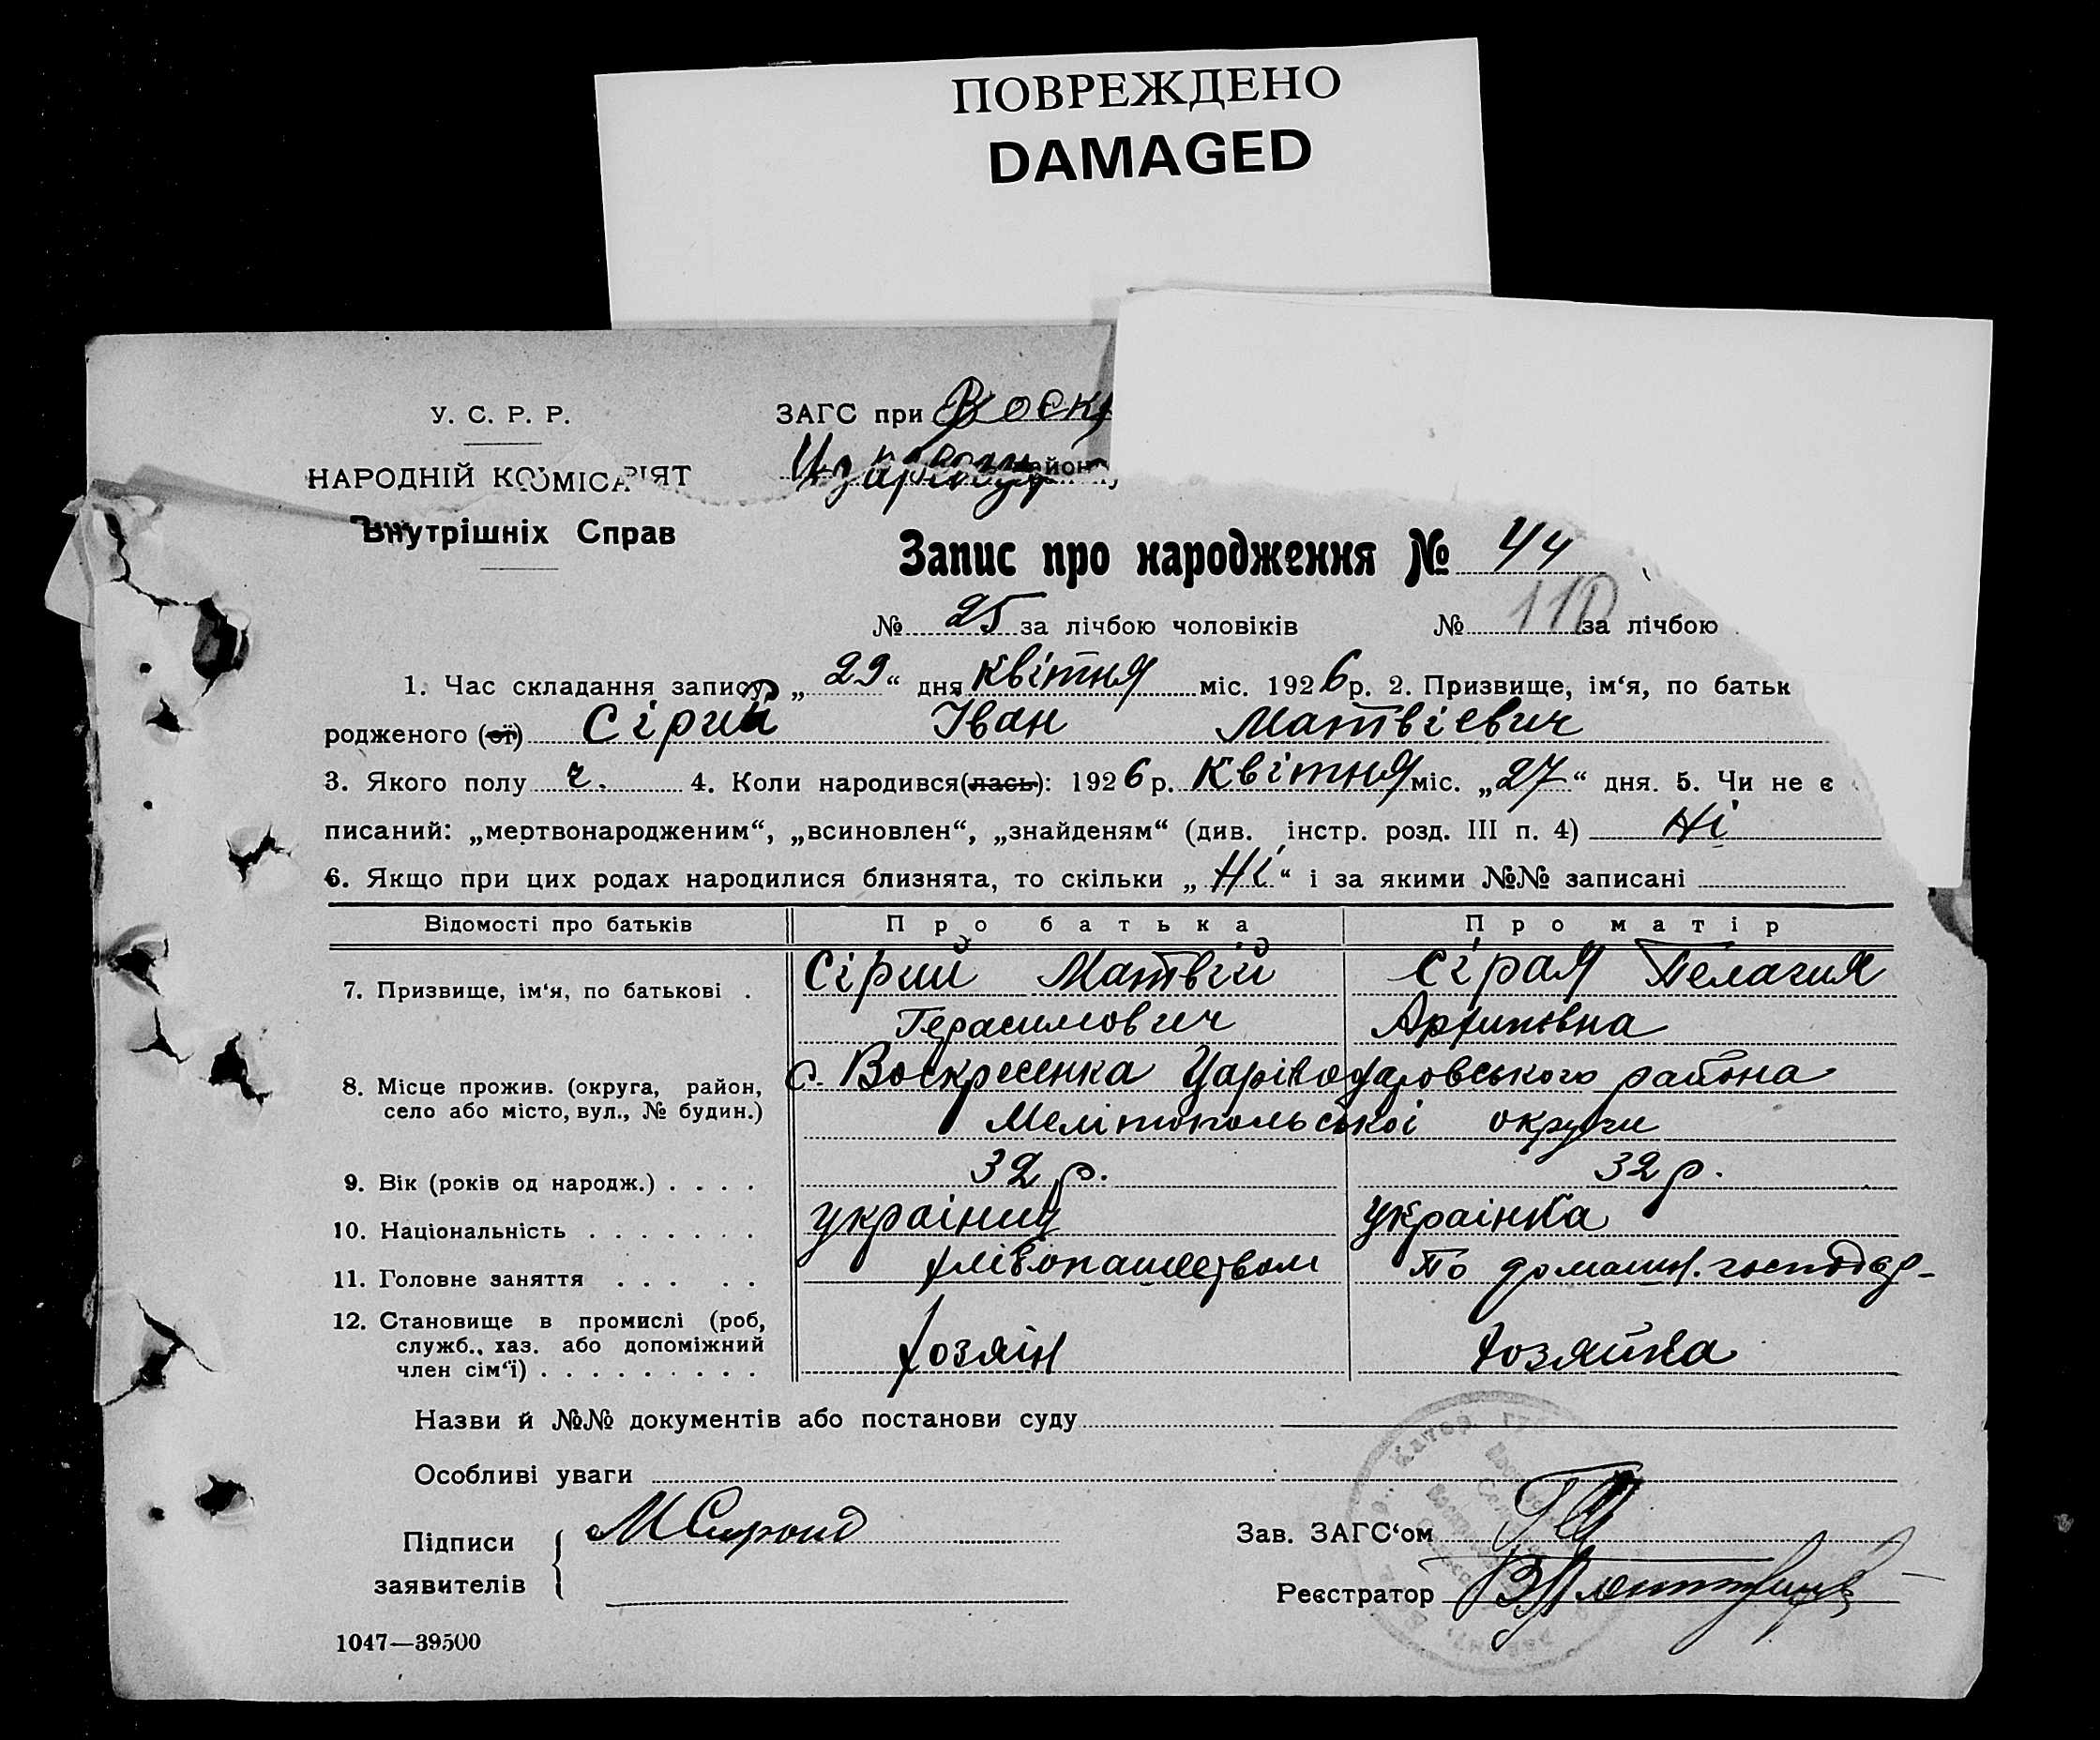 ПОВРЕЖДЕНО
DAMAGED
У. С. Р. Р.
ЗАГС при Воск
НАРОДНІЙ КОМІСАРІЯТ
району
Внутрішніх Справ
Запис про народження № 44
№ 25 за лічбою чоловіків № 110 за лічбою
1. Час складання запису „29“ дня квітня міс. 1926 р. 2. Призвище, ім‘я, по батьк
родженого (ої) Сірий Іван Матвієвич
3. Якого полу ч. 4. Коли народився(лась): 1926 р. Квітня міс. „27“ дня. 5. Чи не є
писаний: „мертвонародженим“, „всиновлен“, „знайденям“ (див. інстр. розд. III п. 4) Ні
6. Якщо при цих родах народилися близнята, то скільки „Ні“ і за якими №№ записані
Відомості про батьків Про батька Про матір
7. Призвище, ім‘я, по батькові . Сірий Матвій Сірая Пелагия
Герасимович Архиповна
8. Місце прожив. (округа, район, с. Воскресенка Царіводаровського района
село або місто, вул., № будин.) Мелітопольськоі округи
9. Вік (років од народж.) . . . . 32 р. 32 р.
10. Національність . . . . . . . украіниц украінка
11. Головне заняття . . . . . хлівопашеством По домашн. господар-
12. Становище в промислі (роб,
служб., хаз. або допоміжний хозяін хозяйка
член сім‘ї) . . . . . . . . .
Назви й №№ документів або постанови суду
Особливі уваги
Підписи
заявителів
Зав. ЗАГС‘ом
Реєстратор
1047—39500